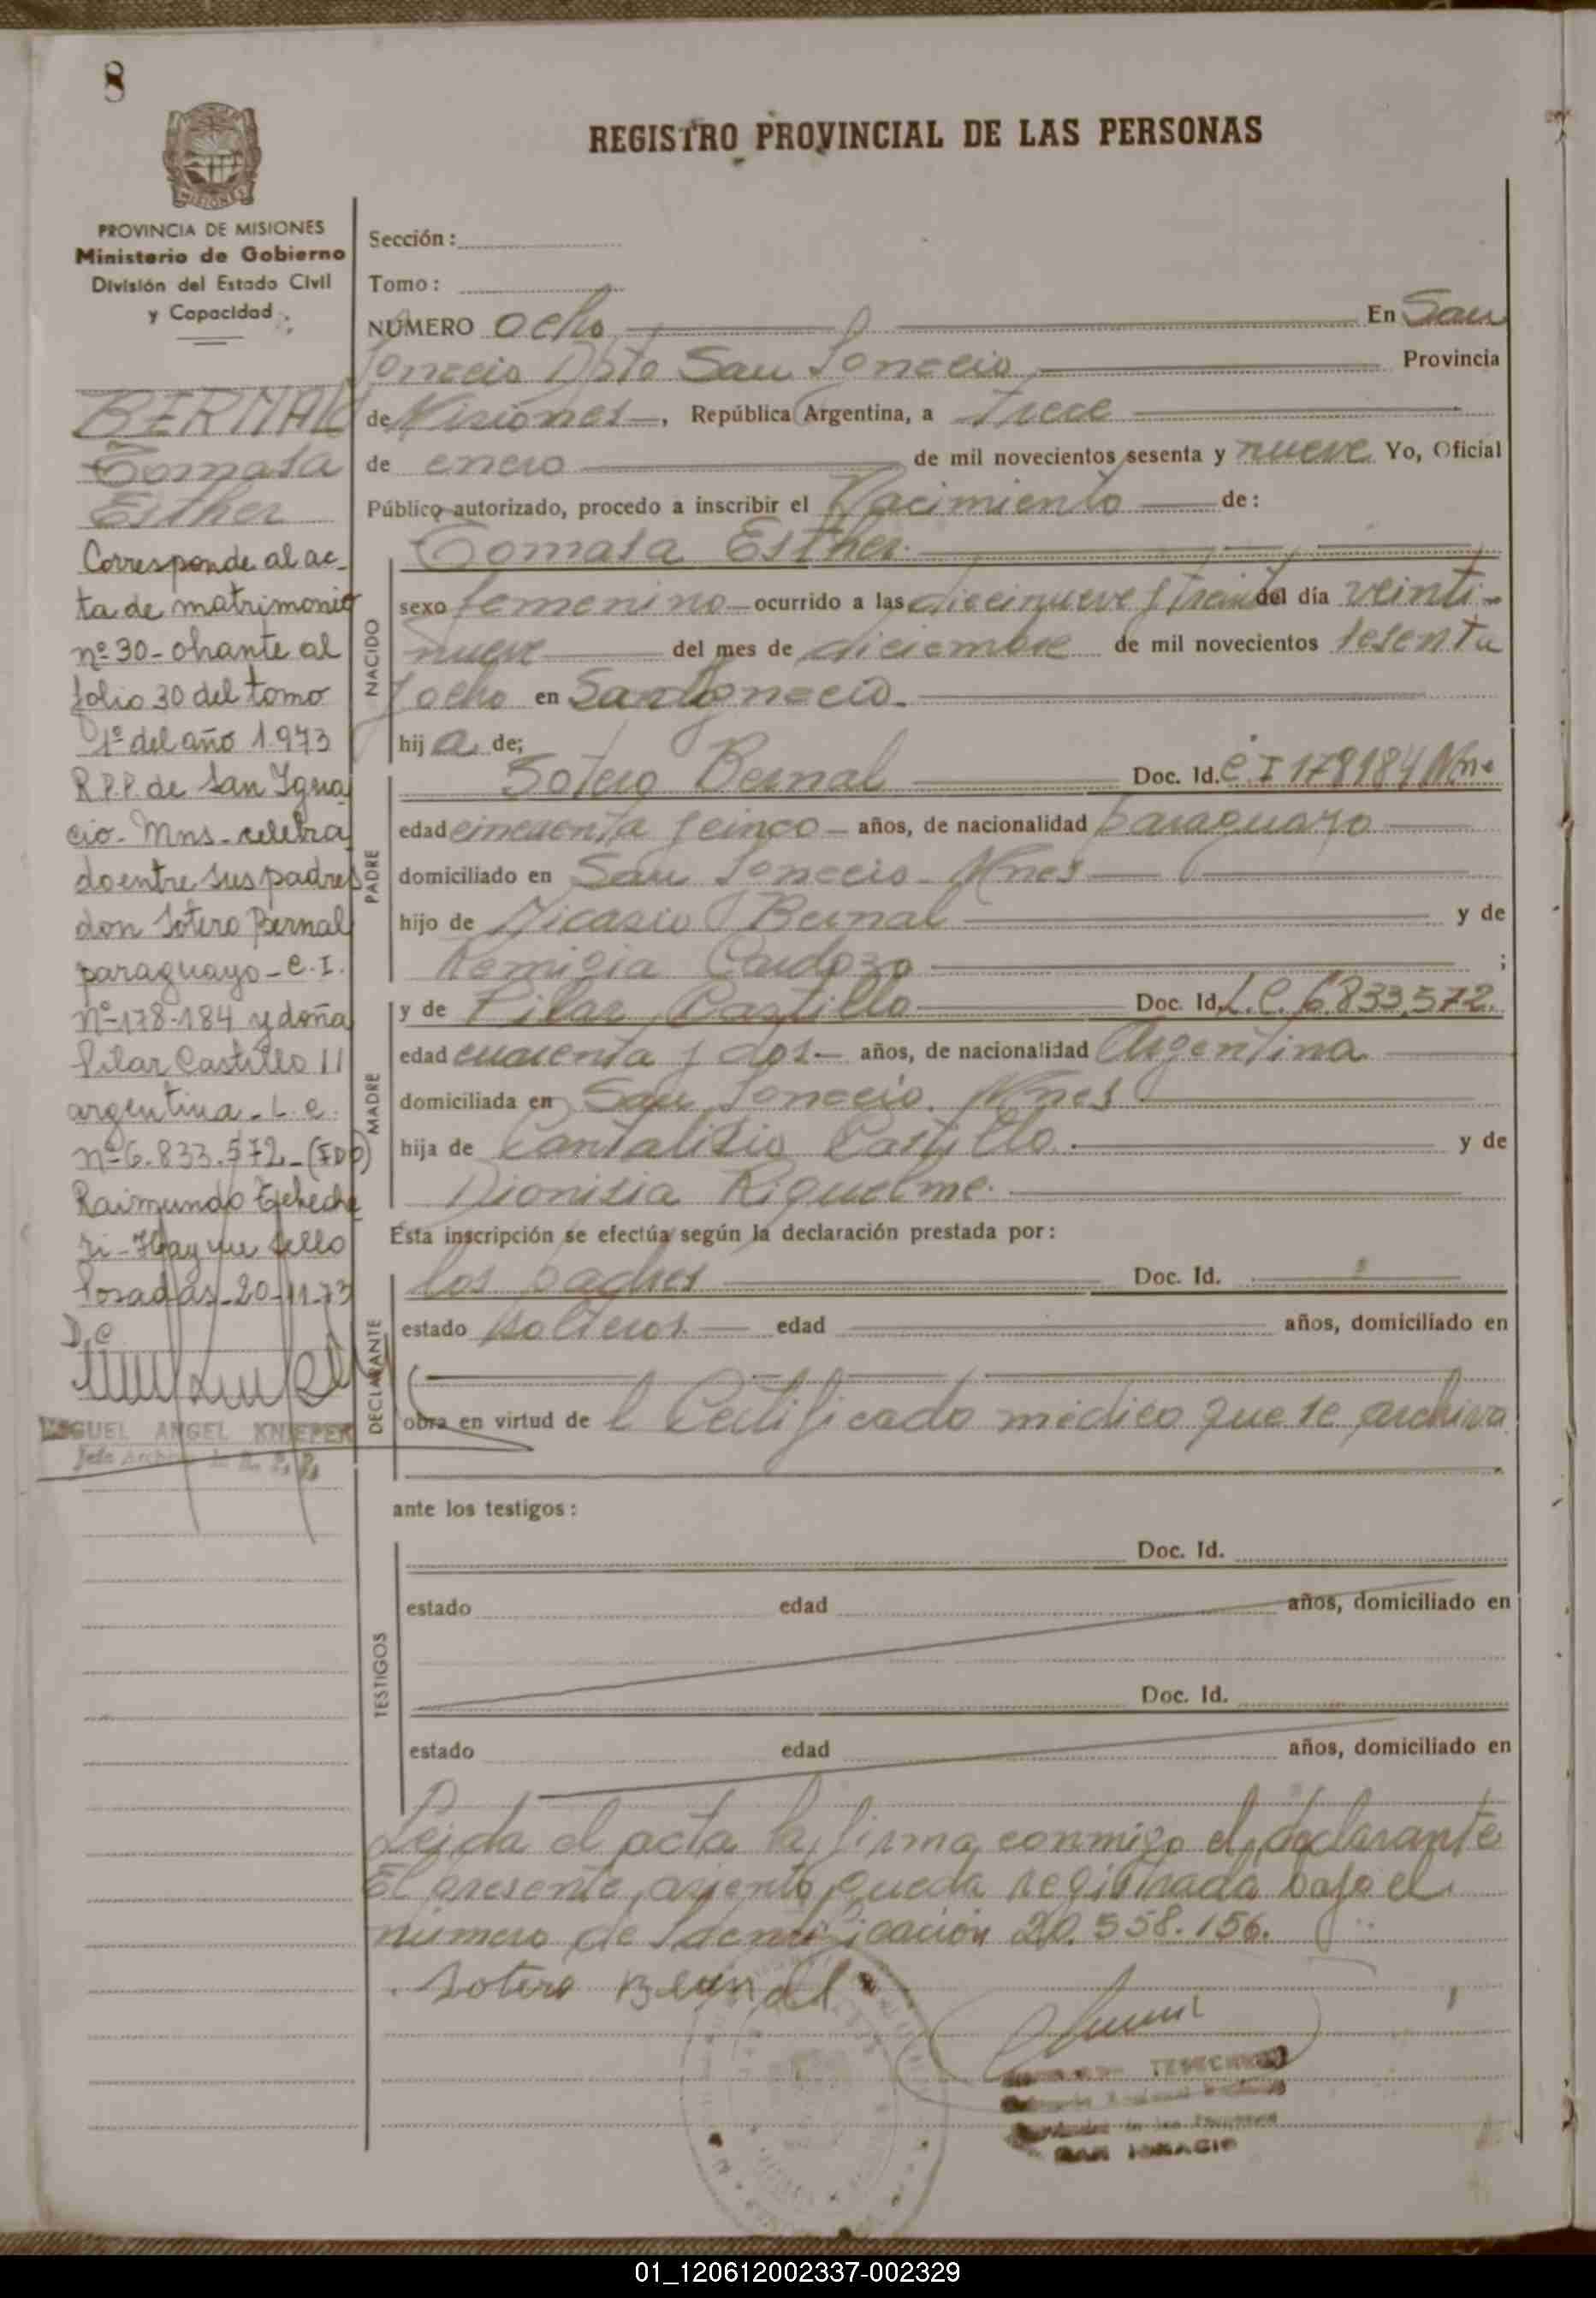 8
REGISTRO PROVINCIAL DE LAS PERSONAS
MISIONES
PROVINCIA DE MISIONES
Ministerio de Gobierno
División del Estado Civil
y Capacidad
BERNAL
Tomasa
Esther
Corresponde al ac-
ta de matrimonio
nº 30 - obrante al
folio 30 del tomo
1º del año 1.973
R.P.P. de San Igna
cio - Mns - celebra
do entre sus padres
don Sotero Bernal
paraguayo - C.I.
Nº 178-184 y doña
Pilar Castillo
argentina - L.C.
nº 6.833.572 - (FDO)
Raimundo
Hay un sello
Posadas - 20-11-73
MIGUEL ANGEL KNIEPER
Sección:
Tomo:
NÚMERO Ocho En San
Ignacio Dpto San Ignacio Provincia
de Misiones, República Argentina, a trece
de enero de mil novecientos sesenta y nueve Yo, Oficial
Público autorizado, procedo a inscribir el Nacimiento de:
Tomasa Esther
NACIDO
sexo femenino ocurrido a las diecinueve y treinta del día veinti-
nueve del mes de diciembre de mil novecientos sesenta
y ocho en San Ignacio.
hija de;
PADRE
Sotero Bernal Doc. Id. C I 178184 Mnes
edad cincuenta y cinco años, de nacionalidad paraguayo
domiciliado en San Ignacio - Mnes
hijo de Nicasio Bernal y de
Remigia Cardozo ;
MADRE
y de Pilar Castillo Doc. Id. L.C. 6.833.572.
edad cuarenta y dos años, de nacionalidad Argentina
domiciliada en San Ignacio. Mnes
hija de Cantalisio Castillo. y de
Dionisia Riquelme.
Esta inscripción se efectúa según la declaración prestada por:
DECLARANTE
los padres Doc. Id.
estado solteros edad años, domiciliado en
obra en virtud de l Certificado médico que se archiva
ante los testigos:
TESTIGOS
Doc. Id.
estado edad años, domiciliado en
Doc. Id.
estado edad años, domiciliado en
Leida el acta la firma conmigo el declarante
El presente asiento queda registrada bajo el
número de Identificación 20.558.156.
Sotero Bernal
SAN IGNACIO
01_120612002337-002329